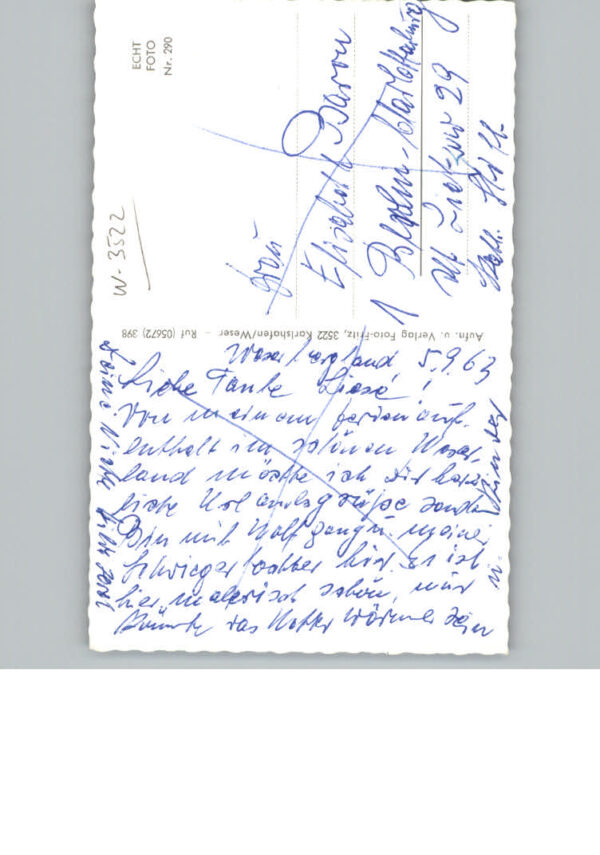 ECHT
FOTO
Nr. 290
W-3522
Frau
Elisabeth Baron
1 Berlin-Charlottenburg
29
Aufn. u. Verlag Foto-Fritz, 3522 Karlshafen/Weser – Ruf (05672) 398
Weserbergland 5.9.63
Liebe Tante Liese!
Von meinem Ferienauf-
enthalt im schönen Weser-
land möchte ich Dir herz-
liche Urlaubsgrüße senden
Bin mit Wolfgang u. meiner
Schwiegertochter hier. Es ist
hier malerisch schön, nur
könnte das Wetter wärmer sein
Deine Nichte